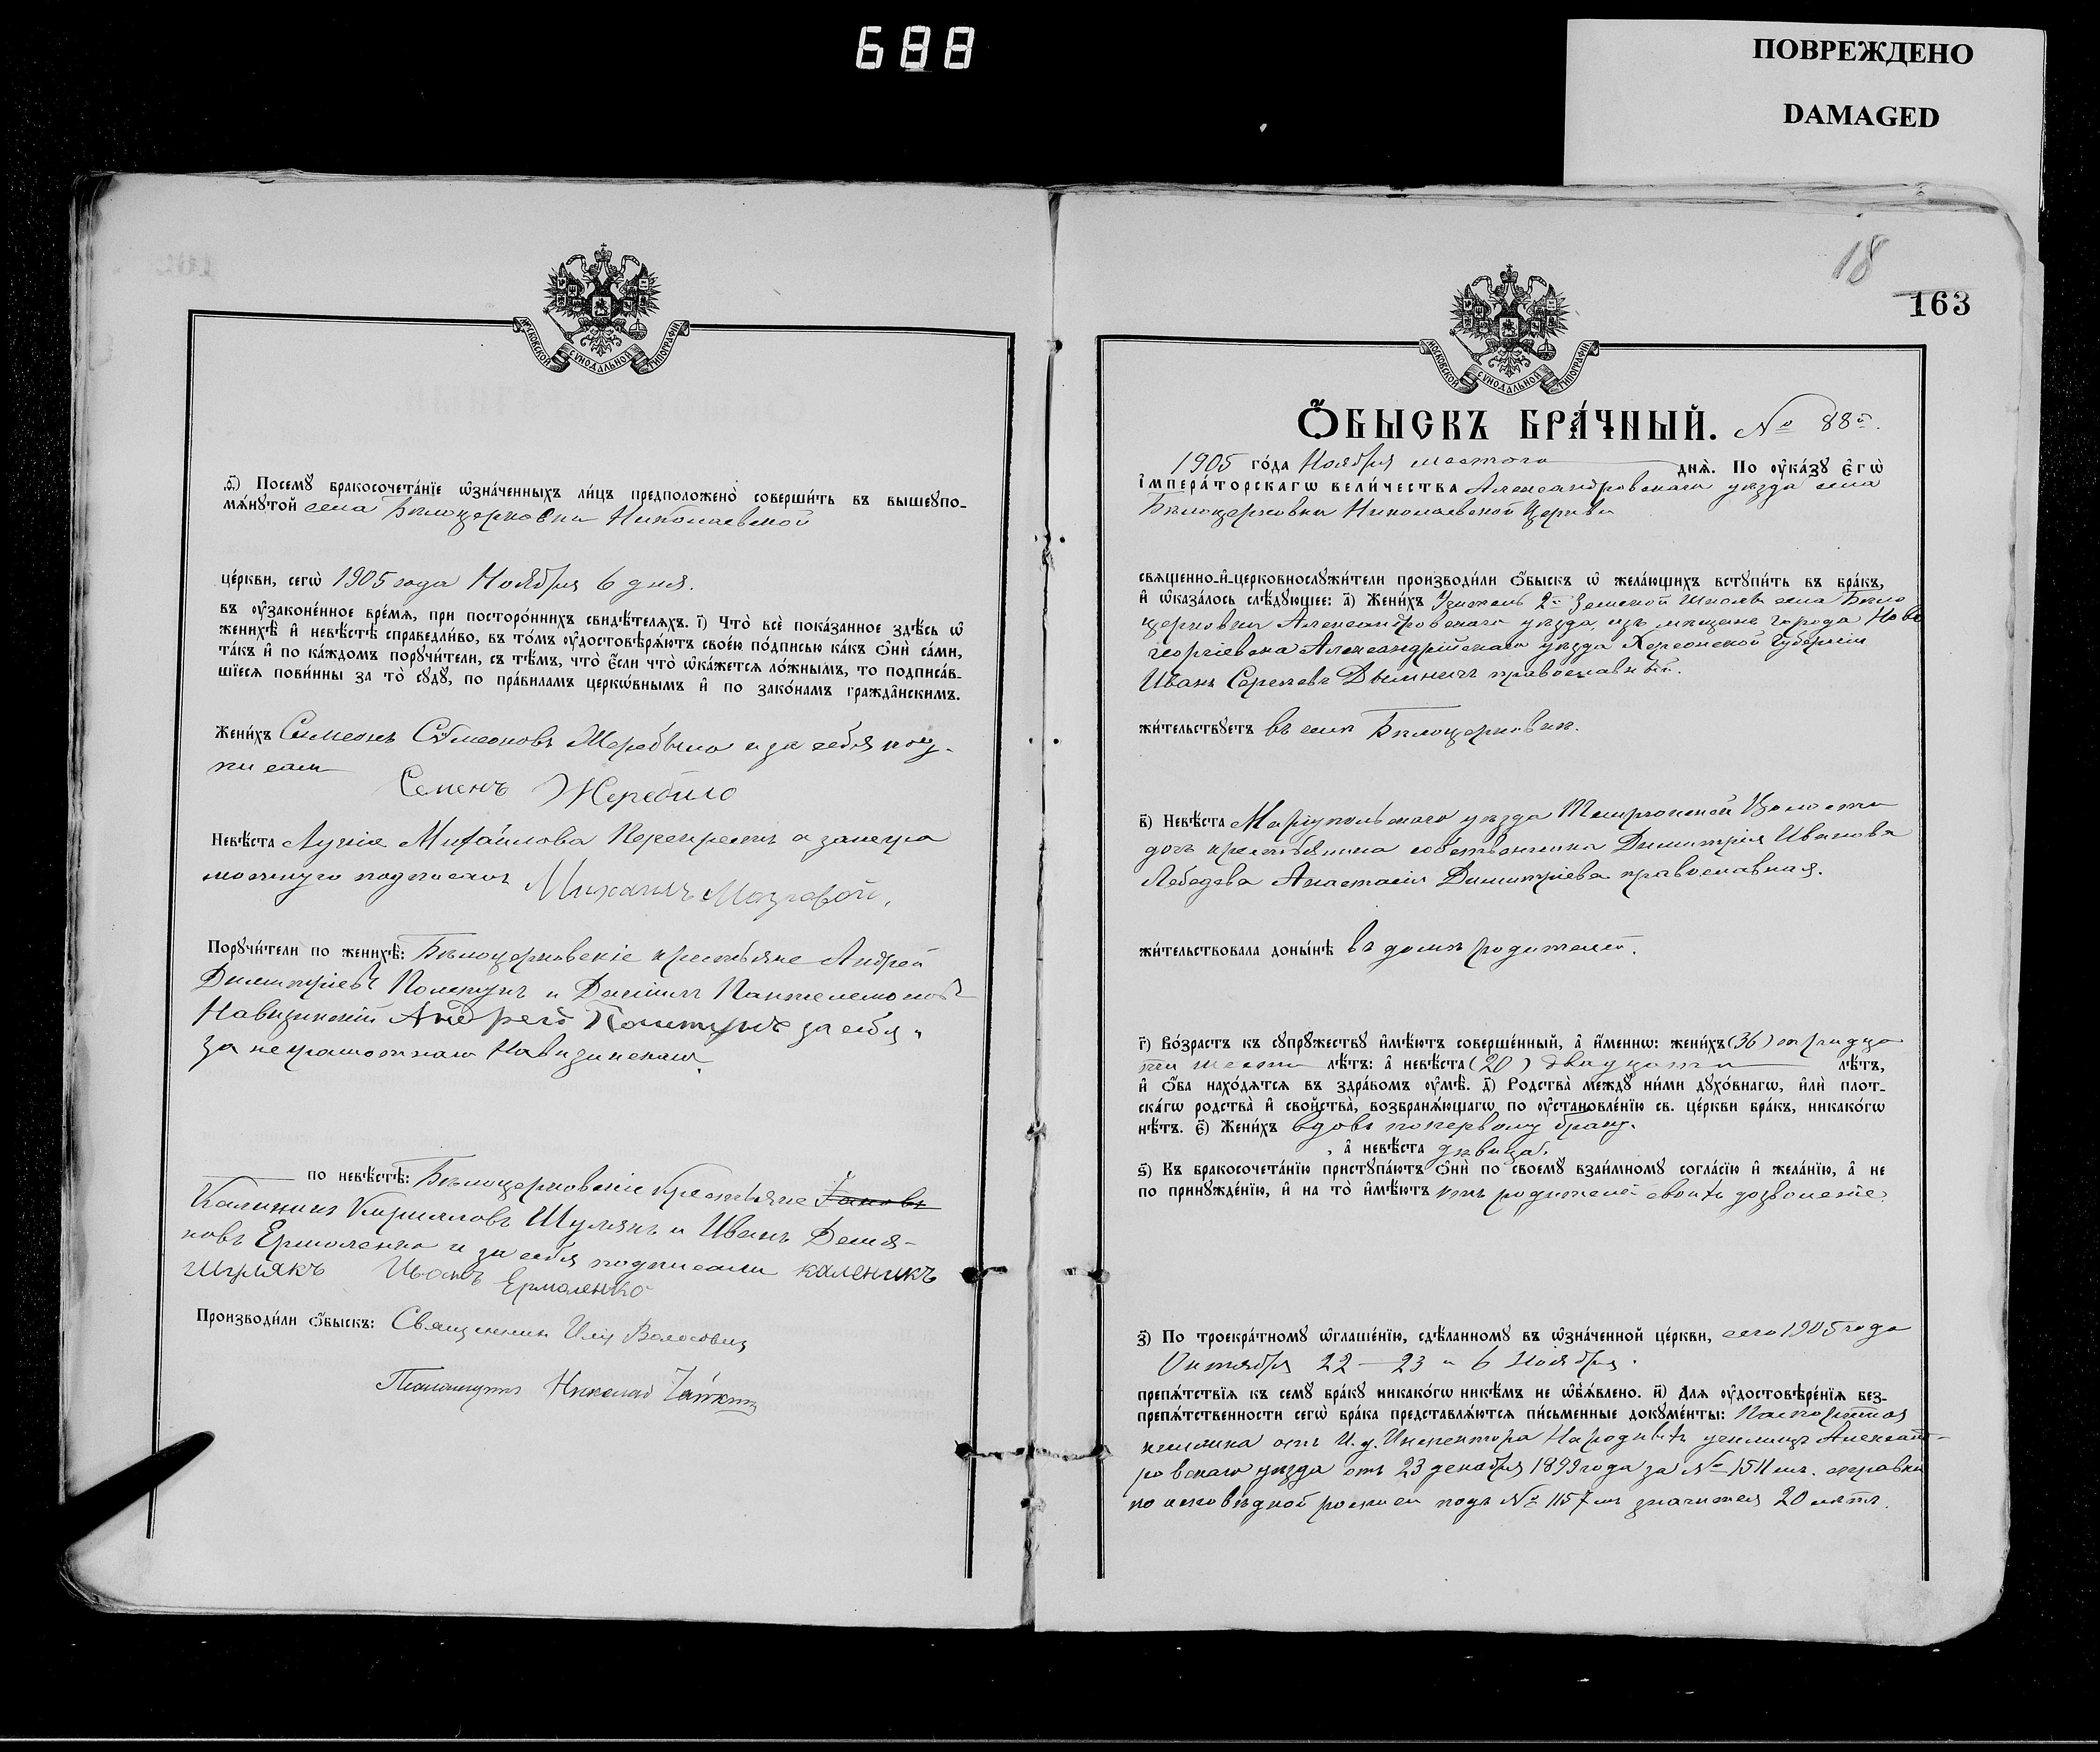 688
ПОВРЕЖДЕНО
DAMAGED
МОСКОВСКОЙ СѴНОДАЛЬНОЙ ТИПОГРАФІИ
ѳ҃) Посемꙋ бракосочета́нїе ѡ҆зна́ченныхъ ли́цъ предположено̀ соверши́ть въ вышеꙋпо-
мѧ́нꙋтой села Бѣлоцерковки Николаевской
це́ркви, сегѡ̀ 1905 года Ноября 6 дня.
въ ᲂу҆зако́ненное вре́мѧ, при посторо́ннихъ свидѣ́телѧхъ. і҃) Что̀ всѐ пока́занное здѣ́сь ѡ҆
женихѣ̀ и҆ невѣ́стѣ справедли́во, въ то́мъ ᲂу҆достовѣрѧ́ютъ свое́ю по́дписью ка́къ ѻ҆нѝ са́ми,
та́къ и҆ по ка́ждомъ порꙋчи́тели, съ тѣ́мъ, что̀ є҆́сли что̀ ѡ҆ка́жетсѧ ло́жнымъ, то подписа́в-
шїесѧ пови́нны за то̀ сꙋдꙋ̀, по пра́виламъ церко́внымъ и҆ по зако́намъ гражда́нскимъ.
Жени́хъ Симеонъ Сѵмеоновъ Жеребыло и за себя под-
писалъ
Семенъ Жеребило
Невѣ́ста Лукія Михаилова Перекрестъ а за неграмотную подписалъ Михаилъ Мазговой,
Порꙋчи́тели по женихѣ̀: Бѣлоцерковскіе крестьяне Андрей
Димитріевъ Полтунъ и Даніилъ Пантелемоновъ
Андрей за себя и
за неграмотнаго
по невѣ́стѣ: Бѣлоцерковскіе крестьяне
Калиникъ Кириловъ Шулякъ и Иванъ Демья-
новъ Ермоленко и за себя подписали каленикъ
Шулякъ Иванъ Ермоленко
Производи́ли ѻ҆́быскъ: Священникъ Илія Волосовиц
Псаломщикъ Николай
18
163
МОСКОВСКОЙ СѴНОДАЛЬНОЙ ТИПОГРАФІИ
Ѻ҆́БЫСКЪ БРА́ЧНЫЙ. № 88й.
1905 го́да Ноября шестого днѧ̀. По ᲂу҆ка́зꙋ є҆гѡ̀
и҆мпера́торскагѡ вели́чества Александровскаго уѣзда села
Бѣлоцерковки Николаевской Церкви
свѧще́нно-и҆-церковнослꙋжи́тели производи́ли ѻ҆́быскъ ѡ҆ жела́ющихъ встꙋпи́ть въ бра́къ,
и҆ ѡ҆каза́лось слѣ́дꙋющее: а҃) Жени́хъ Учитель 2й Земской Школы села Бѣло
церковки Александровскаго уѣзда, изъ мѣщанъ города Ново
георгіевска Александрійскаго уѣзда Херсонской Губерніи
Иванъ Сергѣевъ православный.
жи́тельствꙋетъ въ селѣ Бѣлоцерковкѣ.
в҃) Невѣ́ста Маріупольскаго уѣзда Темрюкской Волости
дочь крестьянина собственника Димитрія Иванова
Лебедева Анастасія Димитріева православная.
жи́тельствовала доны́нѣ въ домѣ родителей.
г҃) Во́зрастъ къ сꙋпрꙋ́жествꙋ и҆мѣ́ютъ соверше́нный, а҆ и҆́менно: жени́хъ (36) тридца
ти шести лѣ́тъ: а҆ невѣ́ста (20) двадцати лѣ́тъ,
и҆ ѻ҆́ба нахо́дѧтсѧ въ здра́вомъ ᲂу҆мѣ̀. д҃) Родства̀ междꙋ̀ ни́ми дꙋхо́внагѡ, и҆лѝ плот-
ска́гѡ родства̀ и҆ сво́йства, возбранѧ́ющагѡ по ᲂу҆становле́нїю св. це́ркви бра́къ, никако́гѡ
нѣ́тъ. є҃) Жени́хъ вдовъ по первому браку.
, а҆ невѣ́ста дѣвица.
ѕ҃) Къ бракосочета́нїю пристꙋпа́ютъ ѻ҆нѝ по своемꙋ̀ взаи́мномꙋ согла́сїю и҆ жела́нїю, а҆ не
по принꙋжде́нїю, и҆ на то̀ и҆мѣ́ютъ отъ родителей своихъ дозволеніе.
з҃) По троекра́тномꙋ ѡ҆глаше́нїю, сдѣ́ланномꙋ въ ѡ҆зна́ченной це́ркви, сего 1905 года
Октября 22 – 23 и 6 Ноября.
препѧ́тствїѧ къ семꙋ̀ бра́кꙋ никако́гѡ никѣ́мъ не ѡ҆б̾ѧ́влено. и҃) Длѧ ᲂу҆достовѣре́нїѧ без-
препѧ́тственности сегѡ̀ бра́ка представлѧ́ютсѧ пи́сьменные докꙋме́нты: Паспортная
книжка отъ И. д. Инспектора Народныхъ училищъ Александ-
ровскаго уѣзда отъ 23 декабря 1899 года за № 1511мъ. справки
по исповѣдной росписи подъ № 1157мъ значится 20 лѣтъ.